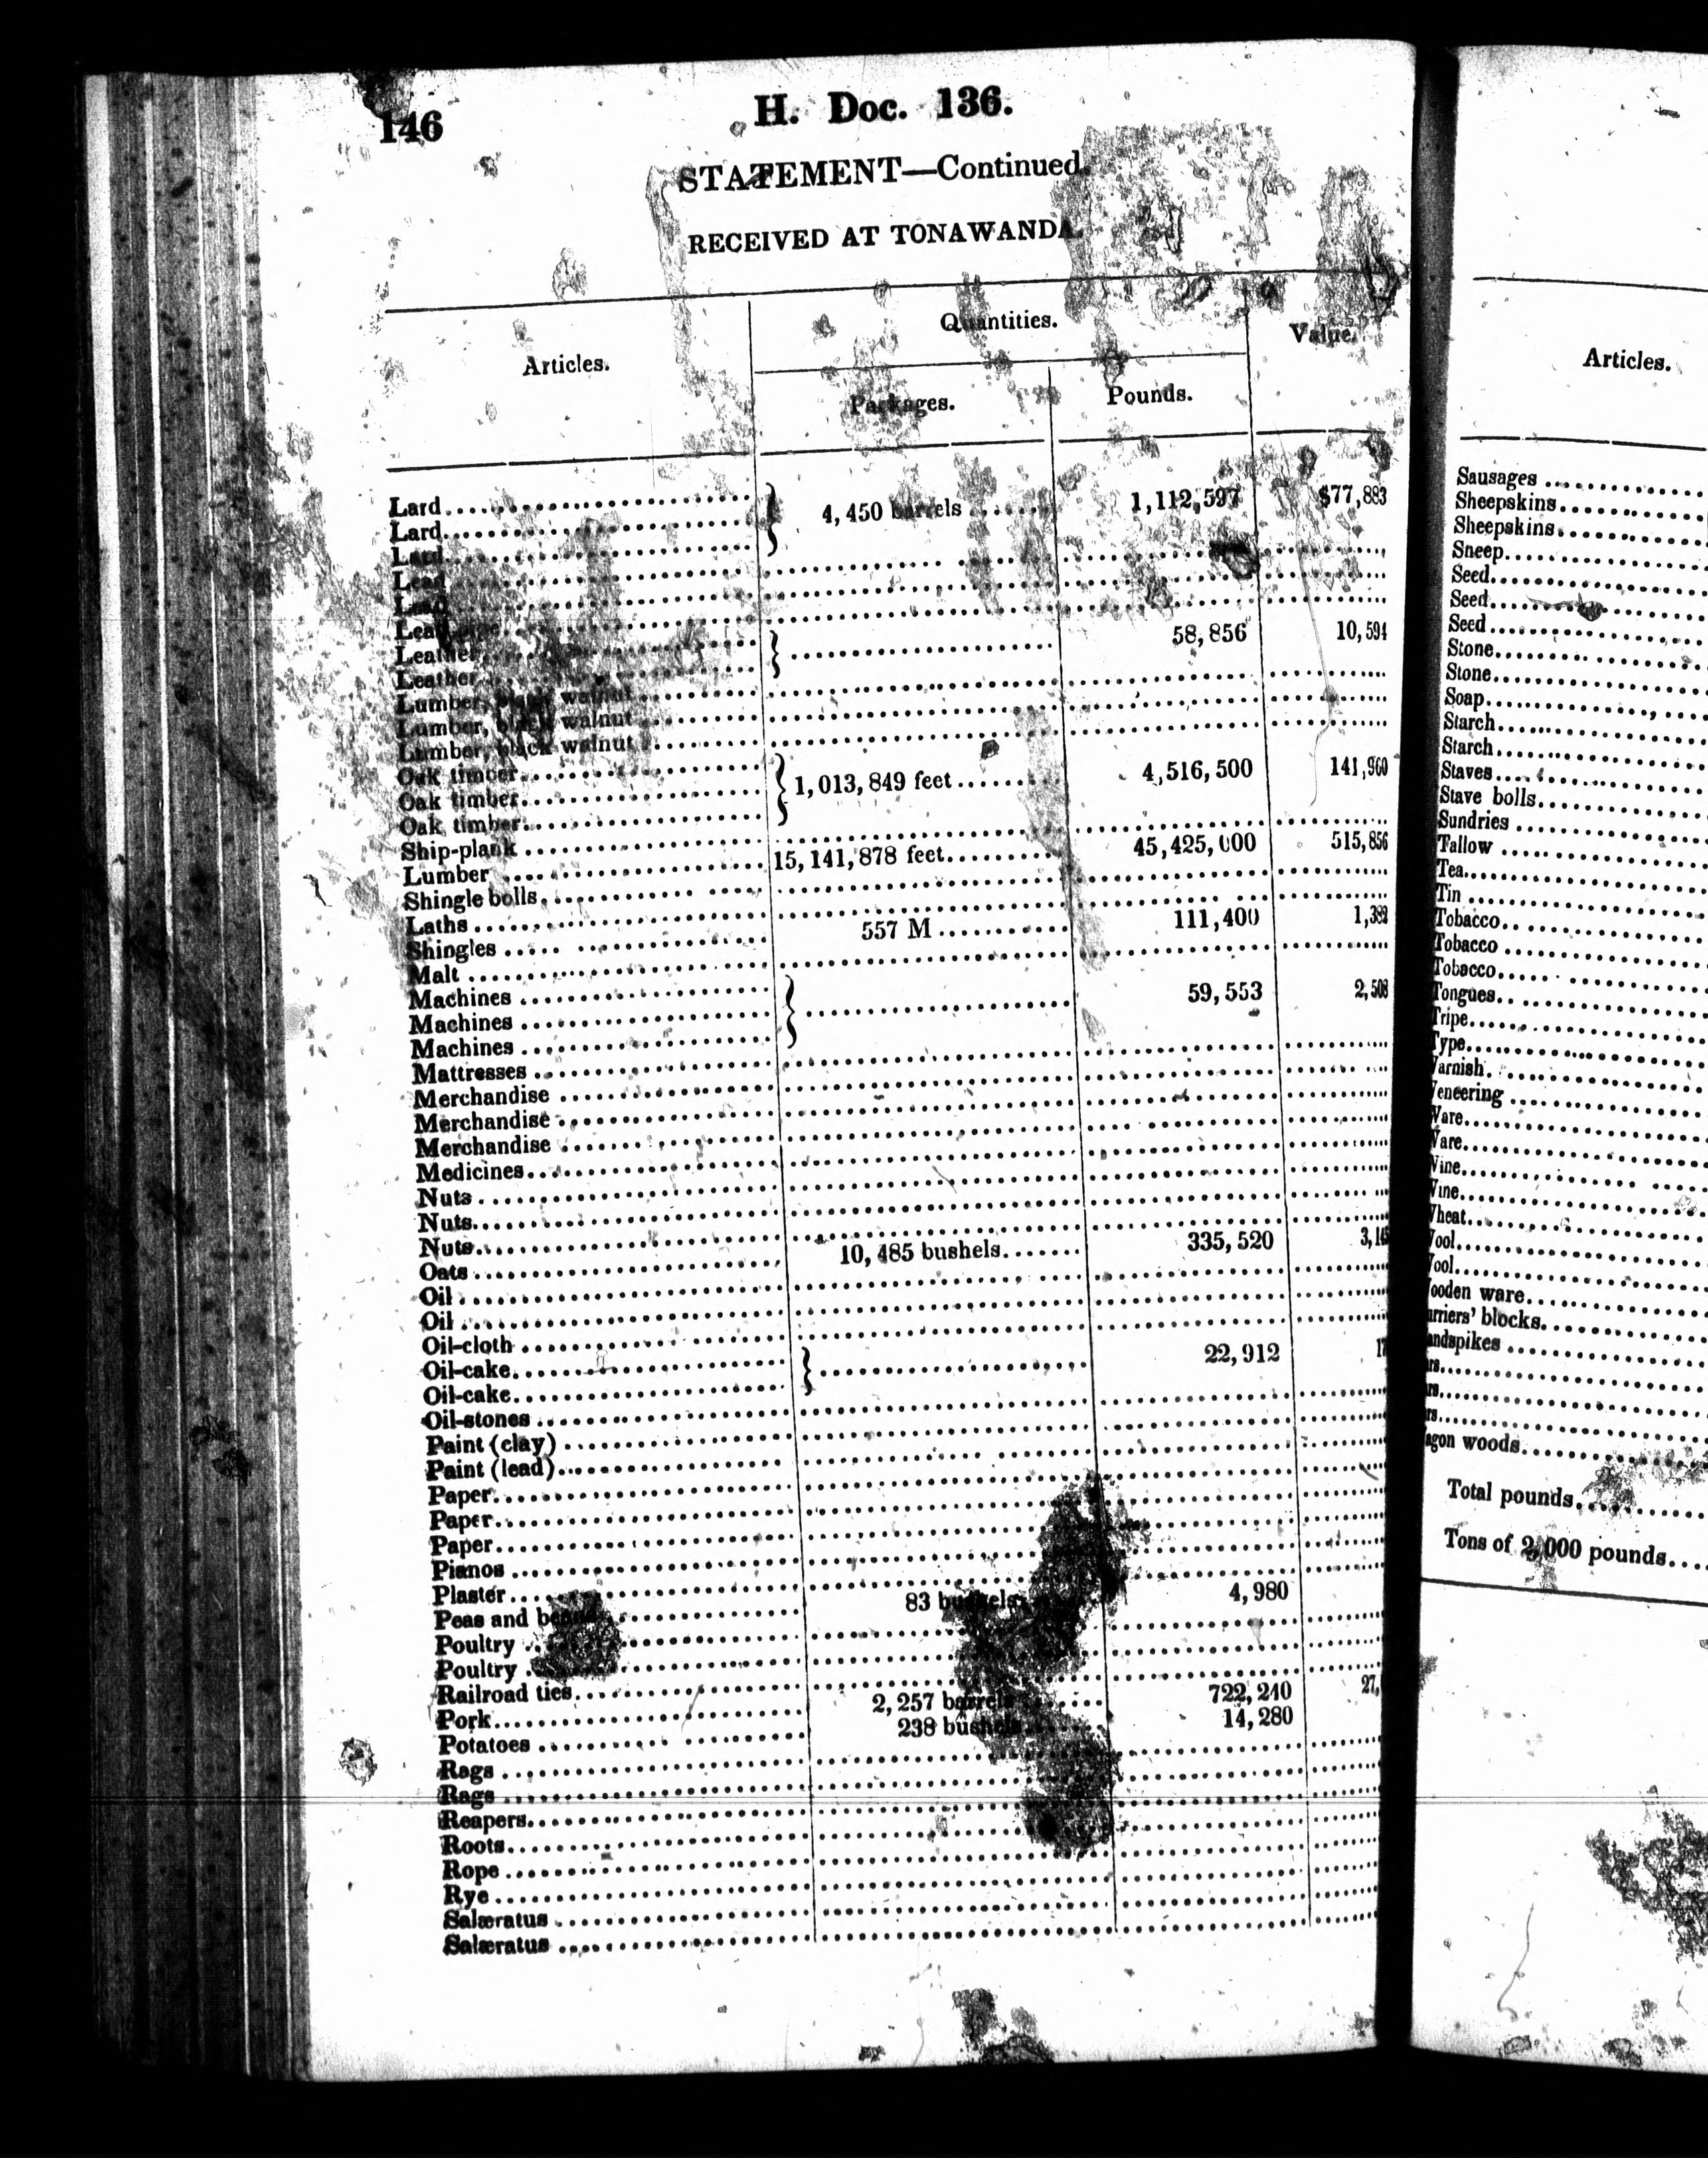 146
H. Doc. 136.
STATEMENT—Continued.
RECEIVED AT TONAWANDA.
Articles.
Quantities.
Value.
Packages.
Pounds.
Lard
Lard 4,450 barrels 1,112,597 $77,883
Lard
Lead
Lead
Lead
Leather 58,856 10,594
Leather
Lumber, black walnut
Lumber, black walnut
Lumber, black walnut
Oak timber
Oak timber 1,013,849 feet 4,516,500 141,960
Oak timber
Ship-plank
Lumber 15,141,878 feet 45,425,000 515,856
Shingle bolls
Laths
Shingles 557 M 111,400 1,392
Malt
Machines
Machines 59,553 2,508
Machines
Mattresses
Merchandise
Merchandise
Merchandise
Medicines
Nuts
Nuts
Nuts
Oats 10,485 bushels 335,520
Oil
Oil
Oil-cloth
Oil-cake 22,912
Oil-cake
Oil-stones
Paint (clay)
Paint (lead)
Paper
Paper
Paper
Pianos
Plaster
Peas and beans 83 bushels 4,980
Poultry
Poultry
Railroad ties
Pork 2,257 barrels 722,240 27,
Potatoes 238 bushels 14,280
Rags
Rags
Reapers
Roots
Rope
Rye
Salæratus
Salæratus
Articles.
Sausages
Sheepskins
Sheepskins
Sheep
Seed
Seed
Seed
Stone
Stone
Soap
Starch
Starch
Staves
Stave bolls
Sundries
Tallow
Tea
Tin
Tobacco
Tobacco
Tobacco
Tongues
Tripe
Type
arnish
eneering
Ware
are
ine
ine
heat
ool
ool
ooden ware
rriers' blocks
andspikes
rs
rs
rs
agon woods
Total pounds
Tons of 2,000 pounds